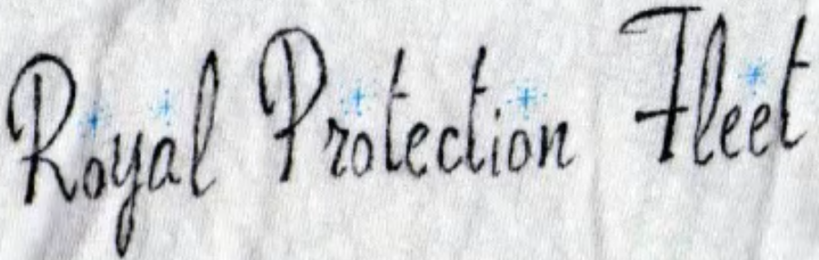 Royal Protection Fleet